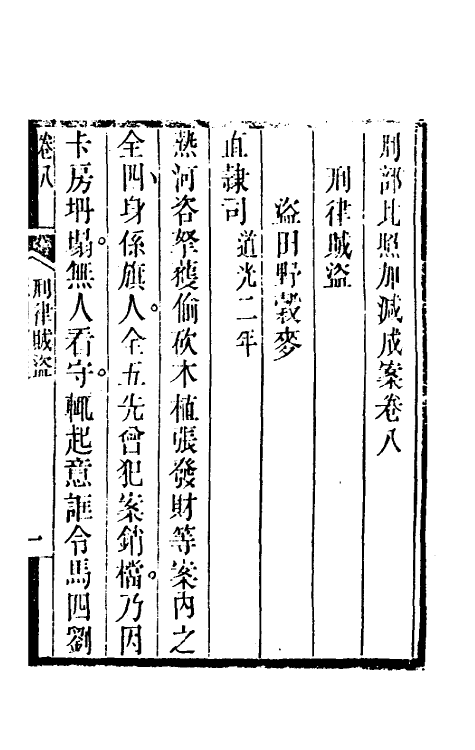 刑部比照加減成案卷八
刑律賊盜
盜田野穀麥
直隸司 道光二年
熱河咨拏獲偷砍木植張發財等案內之
全四身係旗人。全五先曾犯案銷檔。乃因
卡房坍塌。無人看守。輒起意誆令馬四劉
卷八 刑律賊盜 一